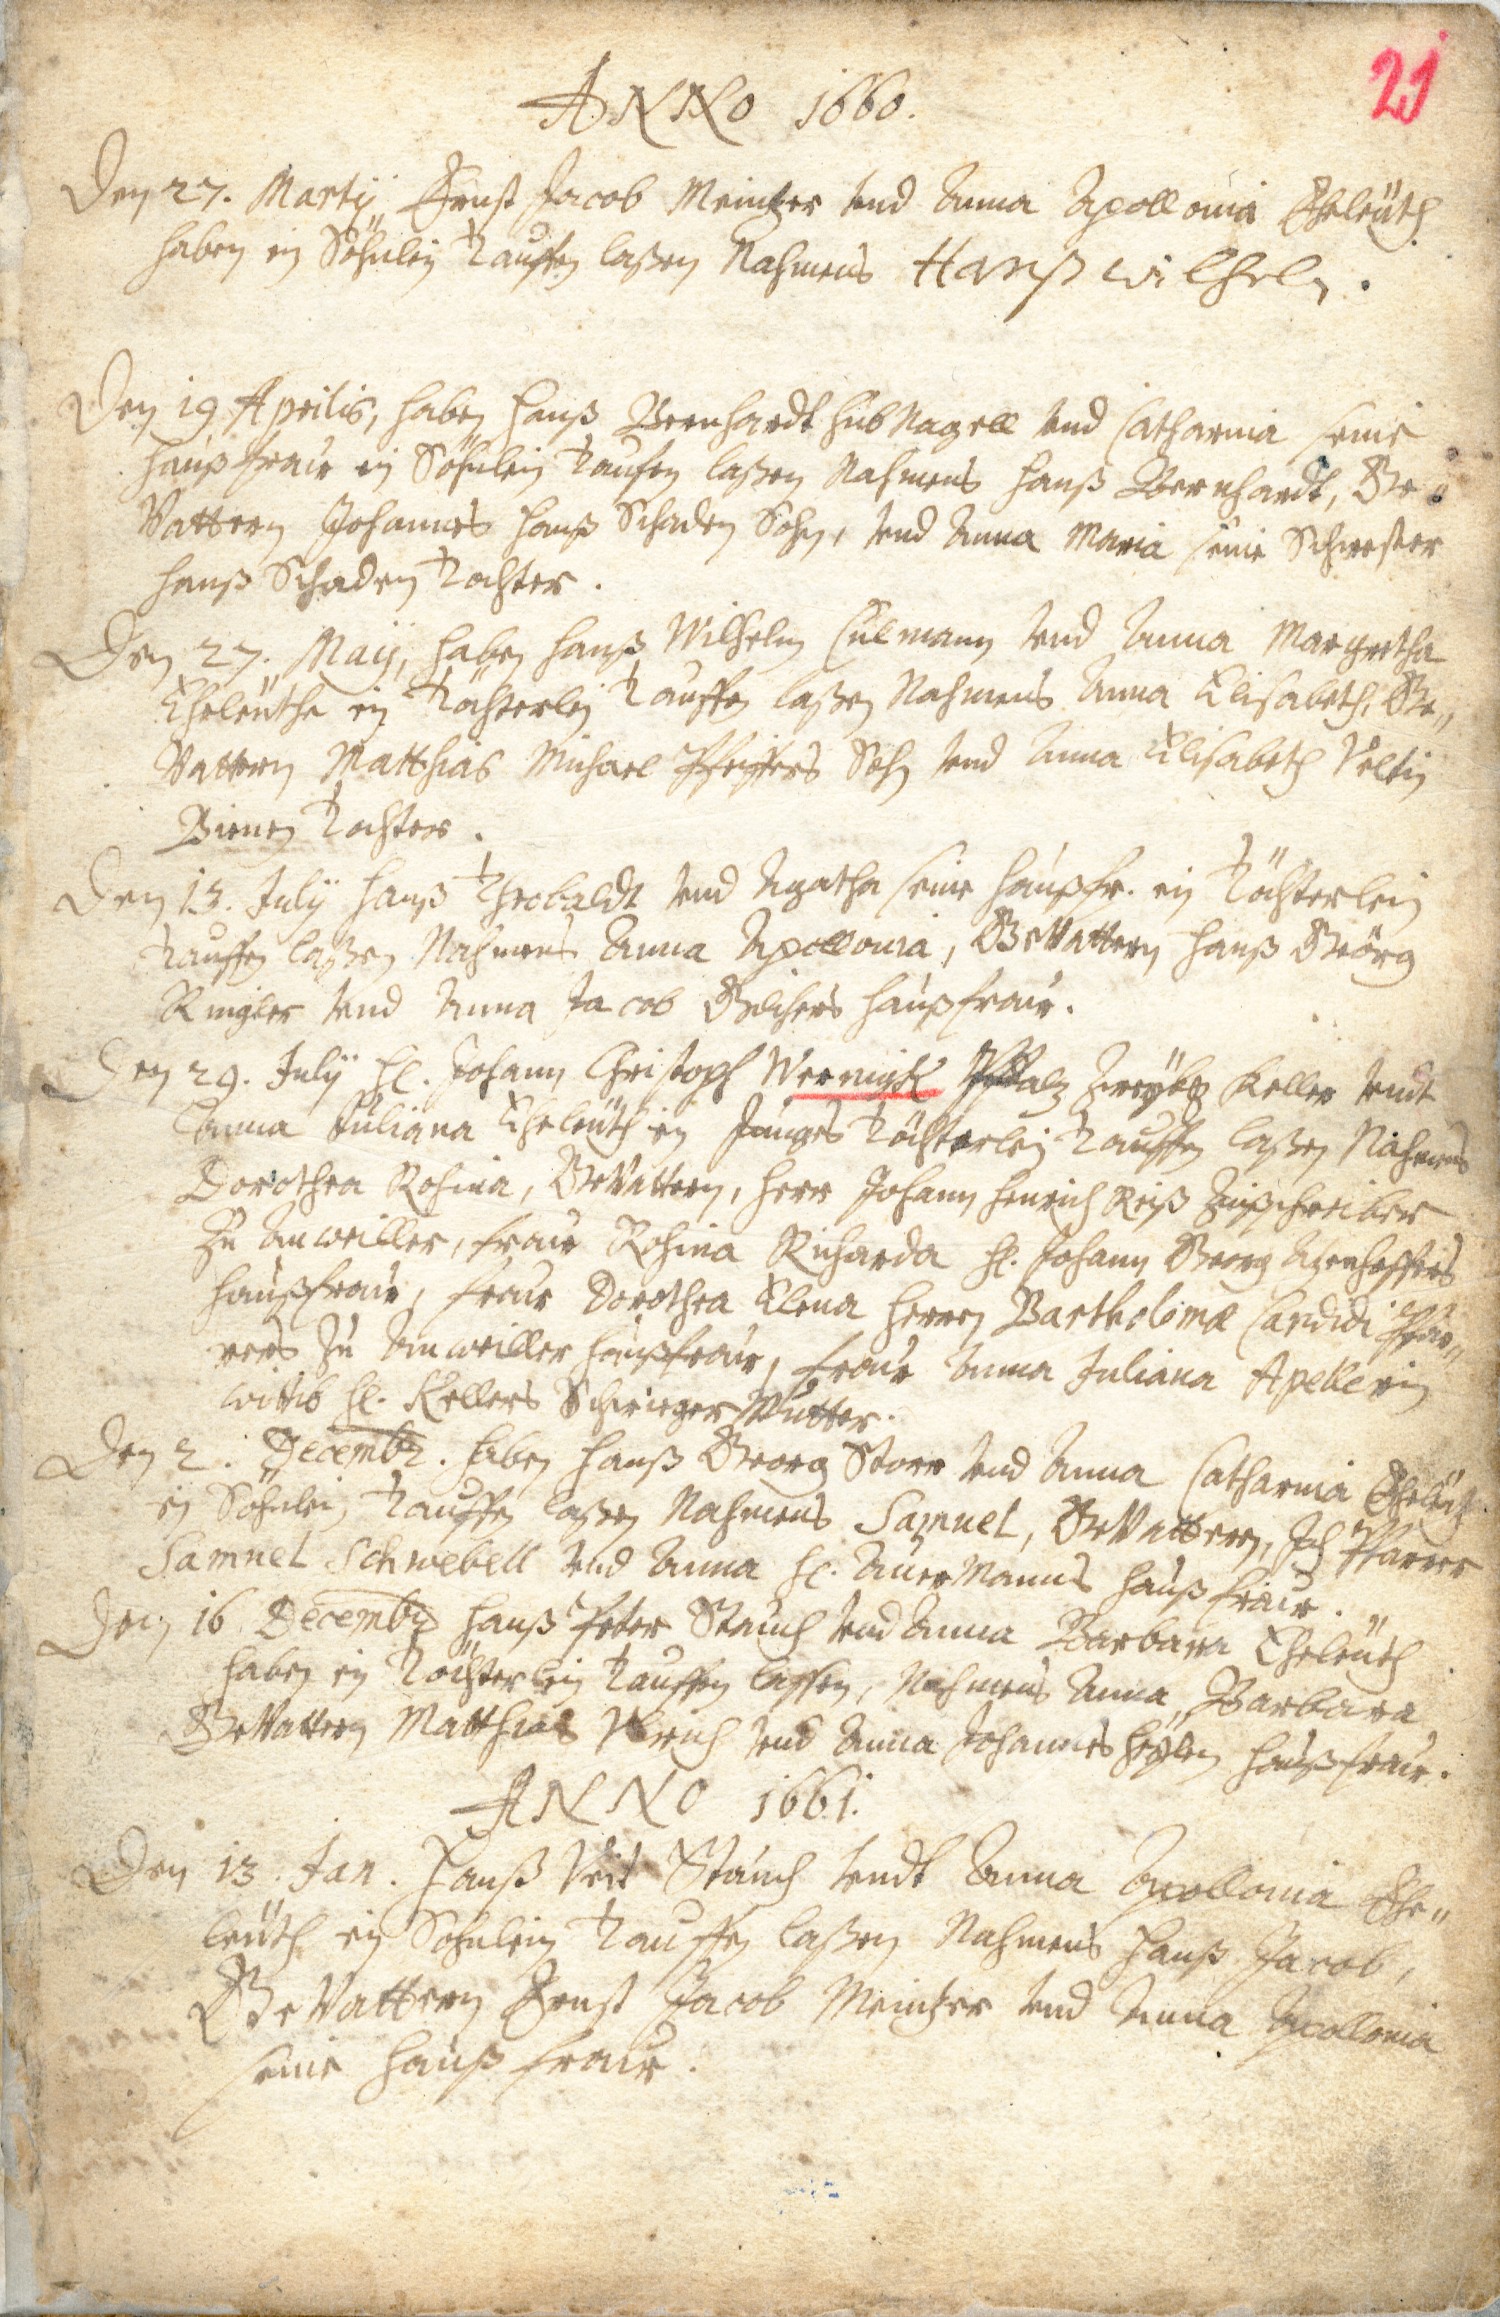 21
ANNO 1660.
Den 27. Martij Ernst Jacob Meintzer vnd Anna Apollonia Eheleüth
haben ein Söhnlein Tauffen laßen Nahmens Hanß wilhelm.
Den 19 Aprilis, haben Hanß Bernhardt HubNagell vnd Catharina seine
haußfraw ein Söhnlein Taufen laßen Nahmens Hanß Bernhardt, Ge-
Vattern Johannes Hanß Schaden Sohn, vnd Anna Maria seine Schwester
Hanß Schaden Tochter.
Den 27. Maij, haben Hanß Wilhelm Culmann vnd Anna Margretha
Eheleüthe ein Töchterlein Tauffen laßen Nahmens Anna Elisabeth, Ge„
Vattern Matthias Michael Pfeiffers Sohn vnd Anna Elisabeth Veltin
Bienen Tochter.
Den 13. Julij Hanß Theobaldt vnd Agatha seine haußfr. ein Töchterlein
Tauffen laßen Nahmens Anna Apollonia, GeVattern Hanß Geörg
Ringler vnd Anna Jacob haußfraw.
Den 29. Julij H. Johann Christoph Wernigk Pfaltz Zweybr. Keller vndt
Anna Juliana Eheleüth ein Junges Töchterlein Tauffen laßen Nahmens
Dorothea Rosina, GeVattern, Herr Johann Henrich Reiß
Zu Anweiller, fraw Rosina Richarda H. Johann Georg
Haußfraw, fraw Dorothea Elena Herren Bartholomæ Candidi Pfar„
rers Zu Anweiller haußfraw, fraw Anna Juliana Apellerin
wittib H. Kellers SchwiegerMutter.
Den 2. Decembr. haben Hanß Georg Storr vnd Anna Catharina Eheleüth
ein Söhnlein Tauffen laßen Nahmens Samuel, GeVattern, Ich Pfarrer
Samuel Schwebell vnd Anna H. AuerManns haußfraw.
Den 16 Decembr Hanß Peter Stauch vnd Anna Barbara Eheleüth
haben ein Töchterlein Tauffen lassen, Nahmens Anna Barbara
GeVattern Matthias Vlrich vnd Anna Johannes Heylen haußfraw.
ANNO 1661.
Den 13. Jan. Hanß Veit Stauch vndt Anna Apollonia Ehe„
leüth ein Söhnlein Tauffen laßen Nahmens Hanß Jacob,
GeVattern Ernst Jacob Meintzer vnd Anna Apollonia
seine haußfraw.